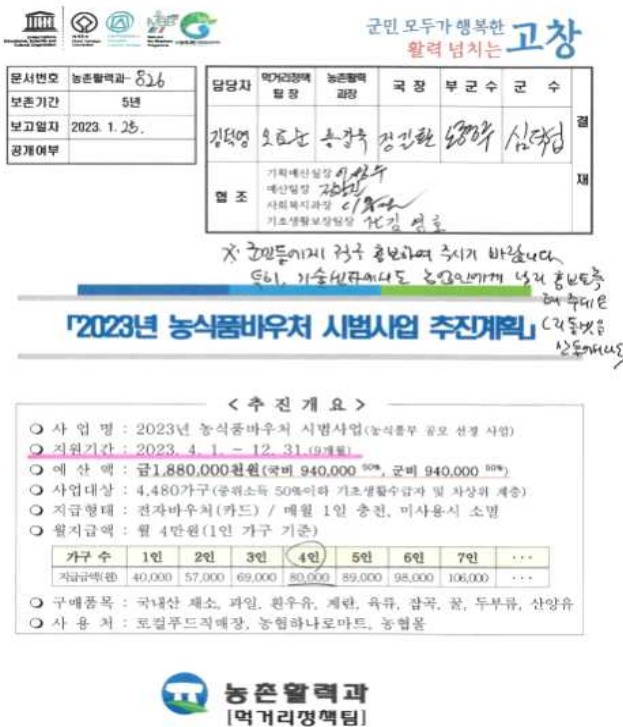 군민 모두가 행복한
활력 넘치는 고창
문서번호 농촌활력과-826
보존기간 5년
보고일자 2023. 1. 25.
공개여부
담당자 먹거리정책팀장 농촌활력과장 국장 부군수 군수
결재
협조
기획예산실장
예산팀장
사회복지과장
기초생활보장팀장
※ 군민들에게 적극 홍보하여 주시기 바랍니다
특히, 기술센터에서도 농업인에게 널리 홍보토록
「2023년 농식품바우처 시범사업 추진계획」
<추진개요>
○ 사 업 명 : 2023년 농식품바우처 시범사업(농식품부 공모 선정 사업)
○ 지원기간 : 2023. 4. 1. ~ 12. 31.(9개월)
○ 예 산 액 : 금1,880,000천원(국비 940,000 50%, 군비 940,000 50%)
○ 사업대상 : 4,480가구(중위소득 50%이하 기초생활수급자 및 차상위 계층)
○ 지급형태 : 전자바우처(카드) / 매월 1일 충전, 미사용시 소멸
○ 월지급액 : 월 4만원(1인 가구 기준)
가구 수 1인 2인 3인 4인 5인 6인 7인 ···
지급금액(원) 40,000 57,000 69,000 80,000 89,000 98,000 106,000 ···
○ 구매품목 : 국내산 채소, 과일, 흰우유, 계란, 육류, 잡곡, 꿀, 두부류, 산양유
○ 사 용 처 : 로컬푸드직매장, 농협하나로마트, 농협몰
농촌활력과
[먹거리정책팀]